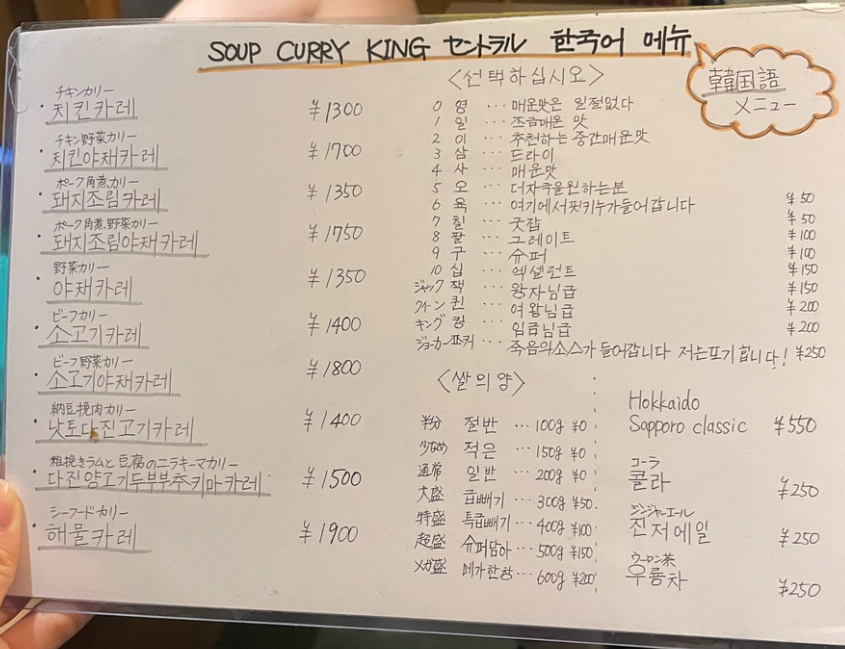 SOUP CURRY KING セントラル 한국어 메뉴
韓国語
メニュー
チキンカリー
・치킨카레 ¥1300
チキン野菜カリー
・치킨야채카레 ¥1700
ポーク角煮カリー
・돼지조림카레 ¥1350
ポーク角煮野菜カリー
・돼지조림야채카레 ¥1750
野菜カリー
・야채카레 ¥1350
ビーフカリー
・소고기카레 ¥1400
ビーフ野菜カリー
・소고기야채카레 ¥1800
納豆挽肉カリー
・낫토다진고기카레 ¥1400
粗挽きラムと豆腐のニラキーマカリー
・다진양고기두부부추키마카레 ¥1500
シーフードカリー
・해물카레 ¥1900
〈선택하십시오〉
0 영 … 매운맛은 일절없다
1 일 … 조금매운 맛
2 이 … 추천하는 중간매운맛
3 삼 … 드라이
4 사 … 매운맛
5 오 … 더자극을원하는분
6 육 … 여기에서핏키누가들어갑니다 ¥50
7 칠 … 굿잡 ¥50
8 팔 … 그레이트 ¥100
9 구 … 슈퍼 ¥100
10 십 … 엑셀런트 ¥150
ジャック 잭 … 왕자님급 ¥150
クイーン 퀸 … 여왕님급 ¥200
キング 킹 … 임금님급 ¥200
ジョーカー 죠커 … 죽음의소스가들어갑니다 저는포기합니다! ¥250
〈쌀의양〉
半分 절반 … 100g ¥0
少なめ 적은 … 150g ¥0
通常 일반 … 200g ¥0
大盛 곱빼기 … 300g ¥50
特盛 특곱빼기 … 400g ¥100
超盛 슈퍼담아 … 500g ¥150
メガ盛 메가한창 … 600g ¥200
Hokkaido
Sapporo classic ¥550
コーラ
콜라 ¥250
ジンジャーエール
진저에일 ¥250
ウーロン茶
우롱차 ¥250